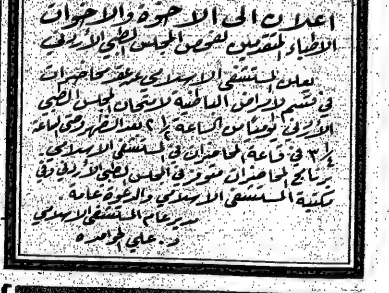 اعلان الى الاخوة والاخوات
الاطباء المتقدمين لفحص المجلس الطبي الأردني
يعلن المستشفى الاسلامي عن عقد محاضرات
في قسم الامراض الباطنية لامتحان المجلس الطبي
الأردني يوم الساعة ٢ ١/٢ بعد الظهر وحتى الساعة
٣ ١/٤ في قاعة المحاضرات في المستشفى الاسلامي
برنامج المحاضرات متوفر في المجلس الطبي الأردني وفي
مكتبة المستشفى الاسلامي والدعوة عامة.
مدير عام المستشفى الاسلامي
د. علي الحوامده